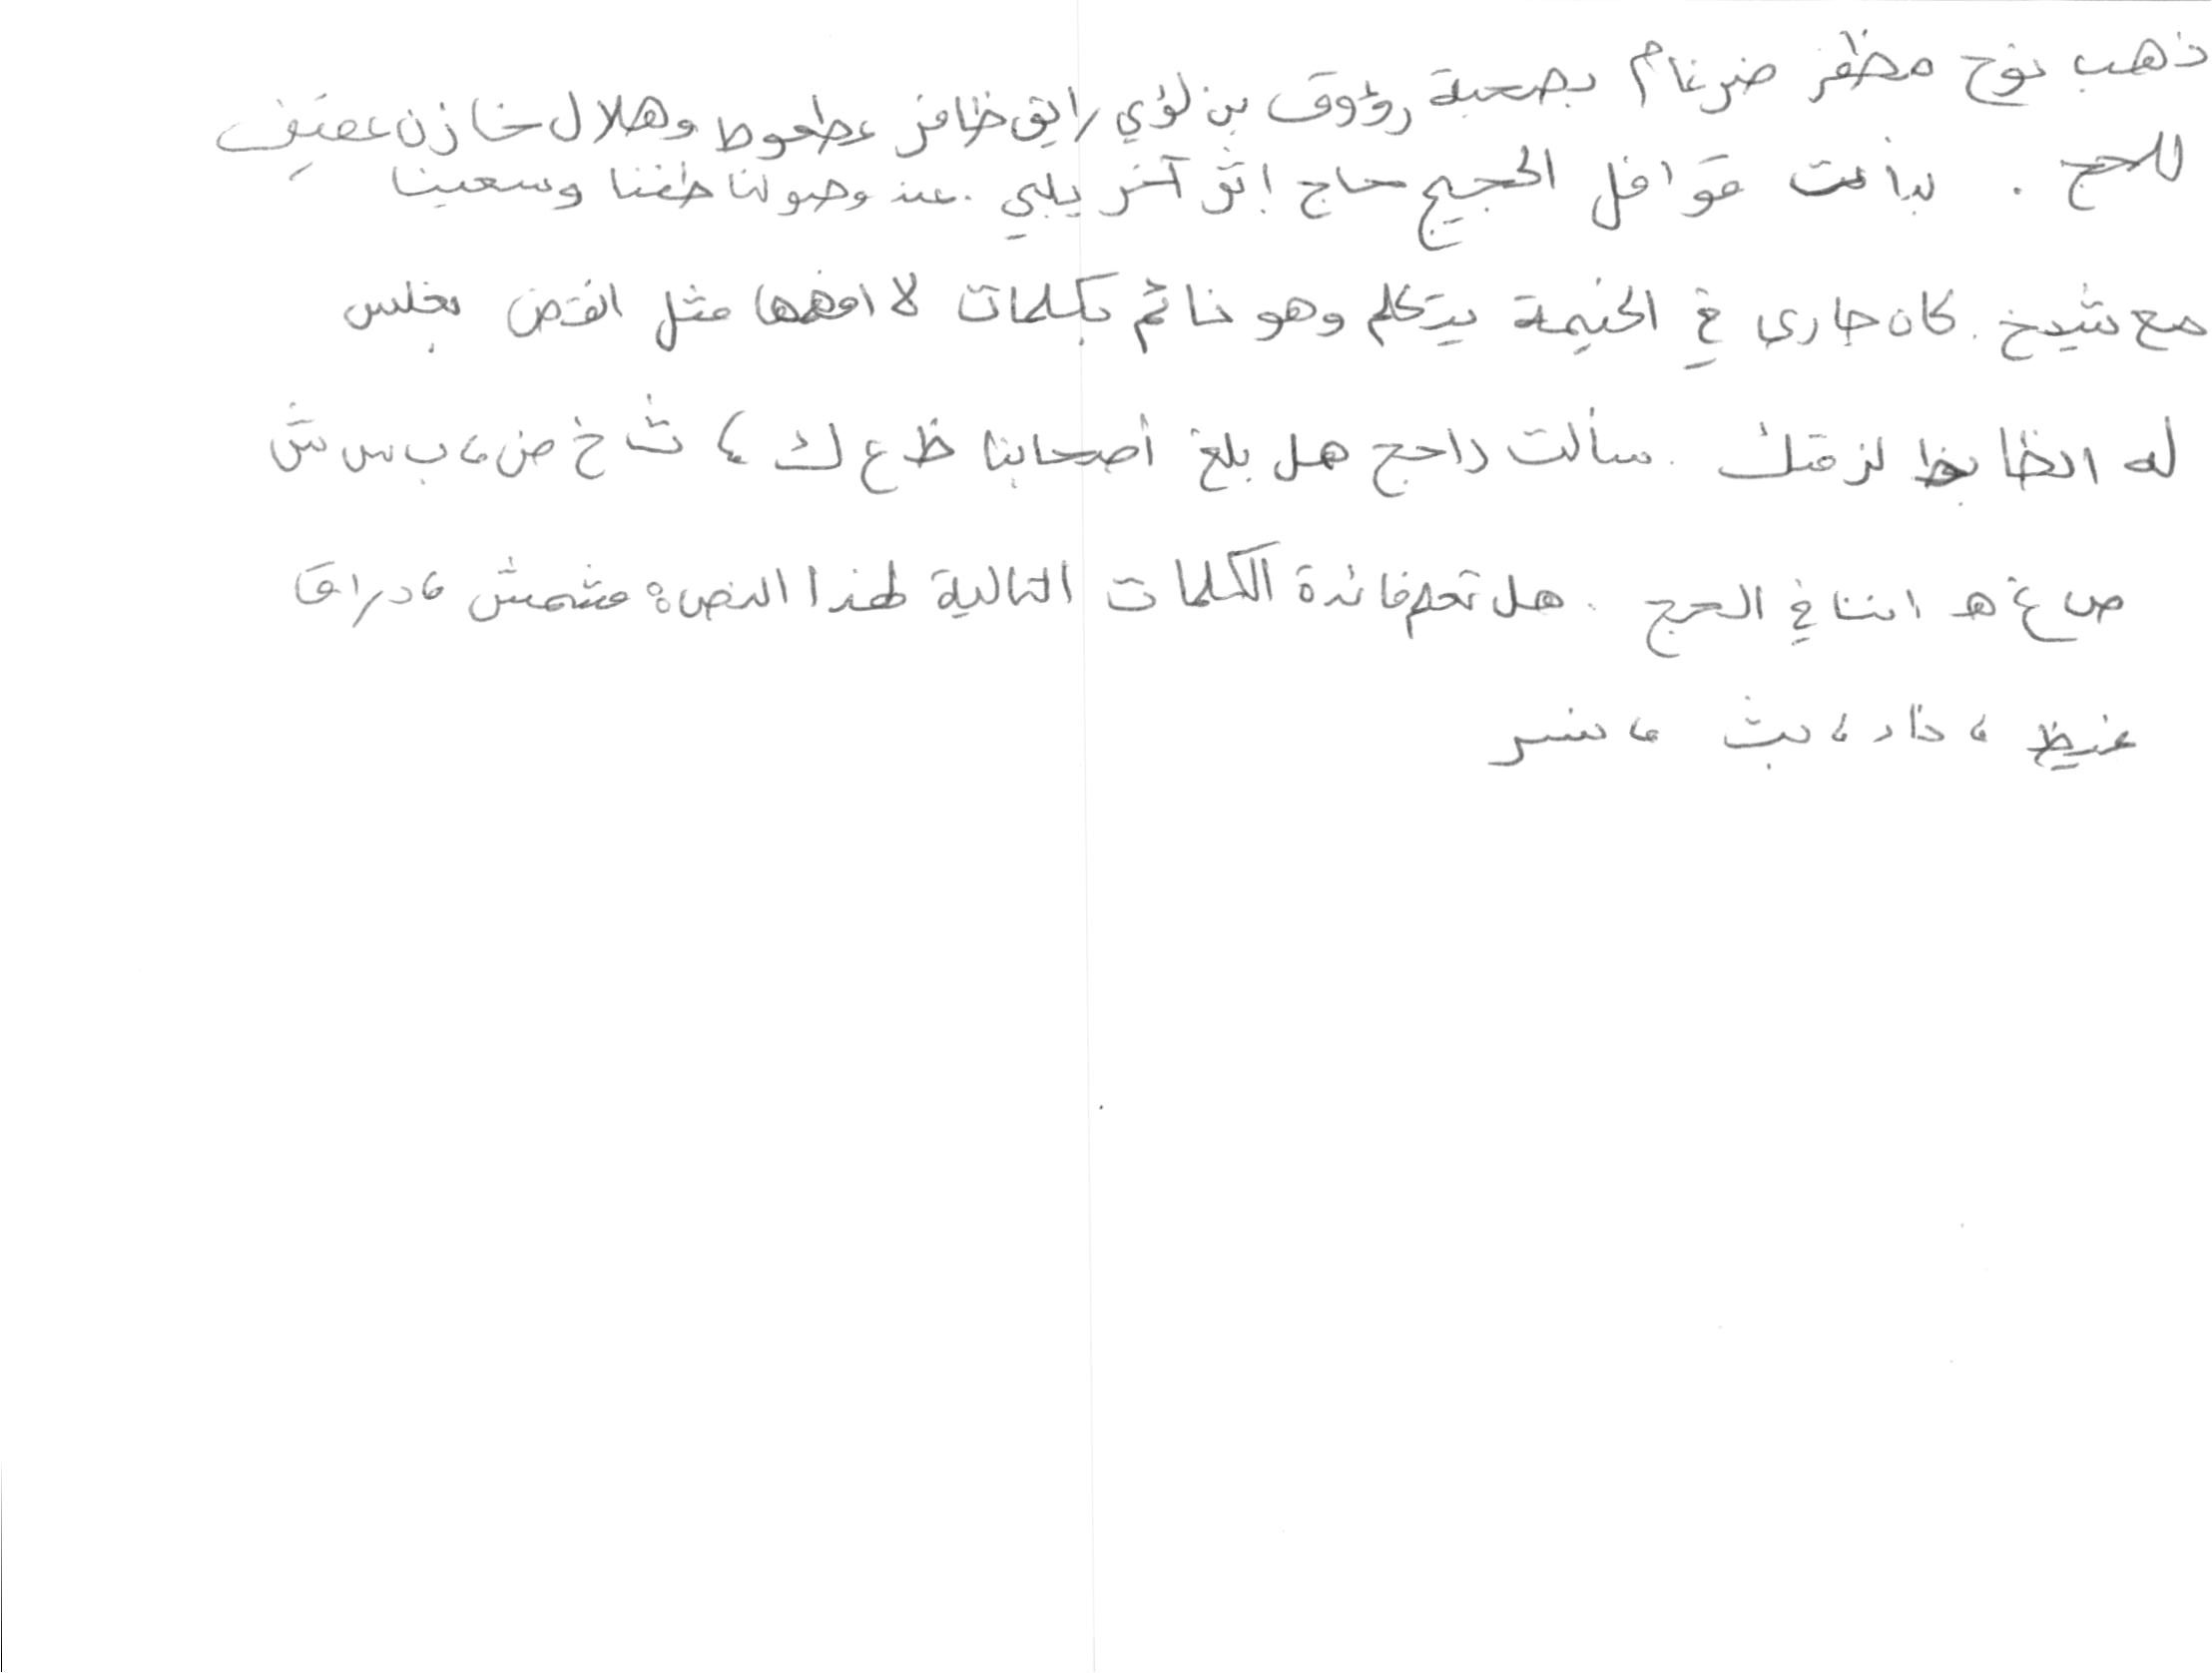 ذهب نوح مظفر ضرغام بصحبة رؤوف بن لؤي رايق ظافر عطعوط وهلال خازن عفيف
للحج . بدأت قوافل الحجيج حاج إثر آخر يلبي . عند وصولنا طفنا وسعينا
مع شيخ . كان جاري في الخيمة يتكلم وهو نائم بكلمات لا افهمها مثل اقتص بخلس
له الظابظ لزمتك . سألت راجح هل بلغ أصحابنا ظ ع ك ، ث خ ض ، ب س ش
ص غ ه اننا في الحج . هل تعلم فائدة الكلمات التالية لهذا النص : مشمش ، دراق
غيظ ، ذاد ، بث ، نسر